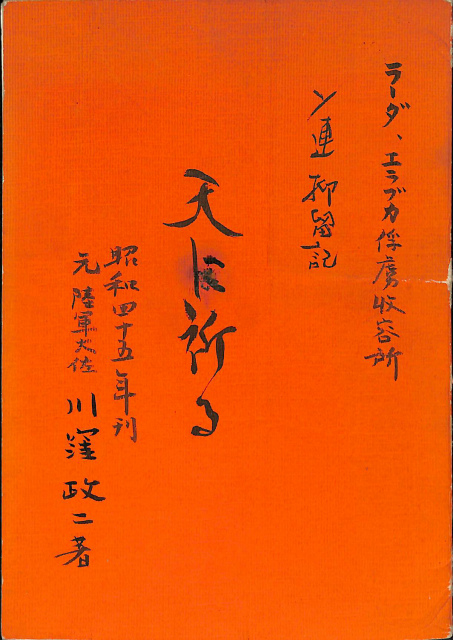 ラーダ、エラブカ俘虜收容所
ソ連抑留記
天に祈る
昭和四十五年刊
元陸軍大佐 川窪政二著